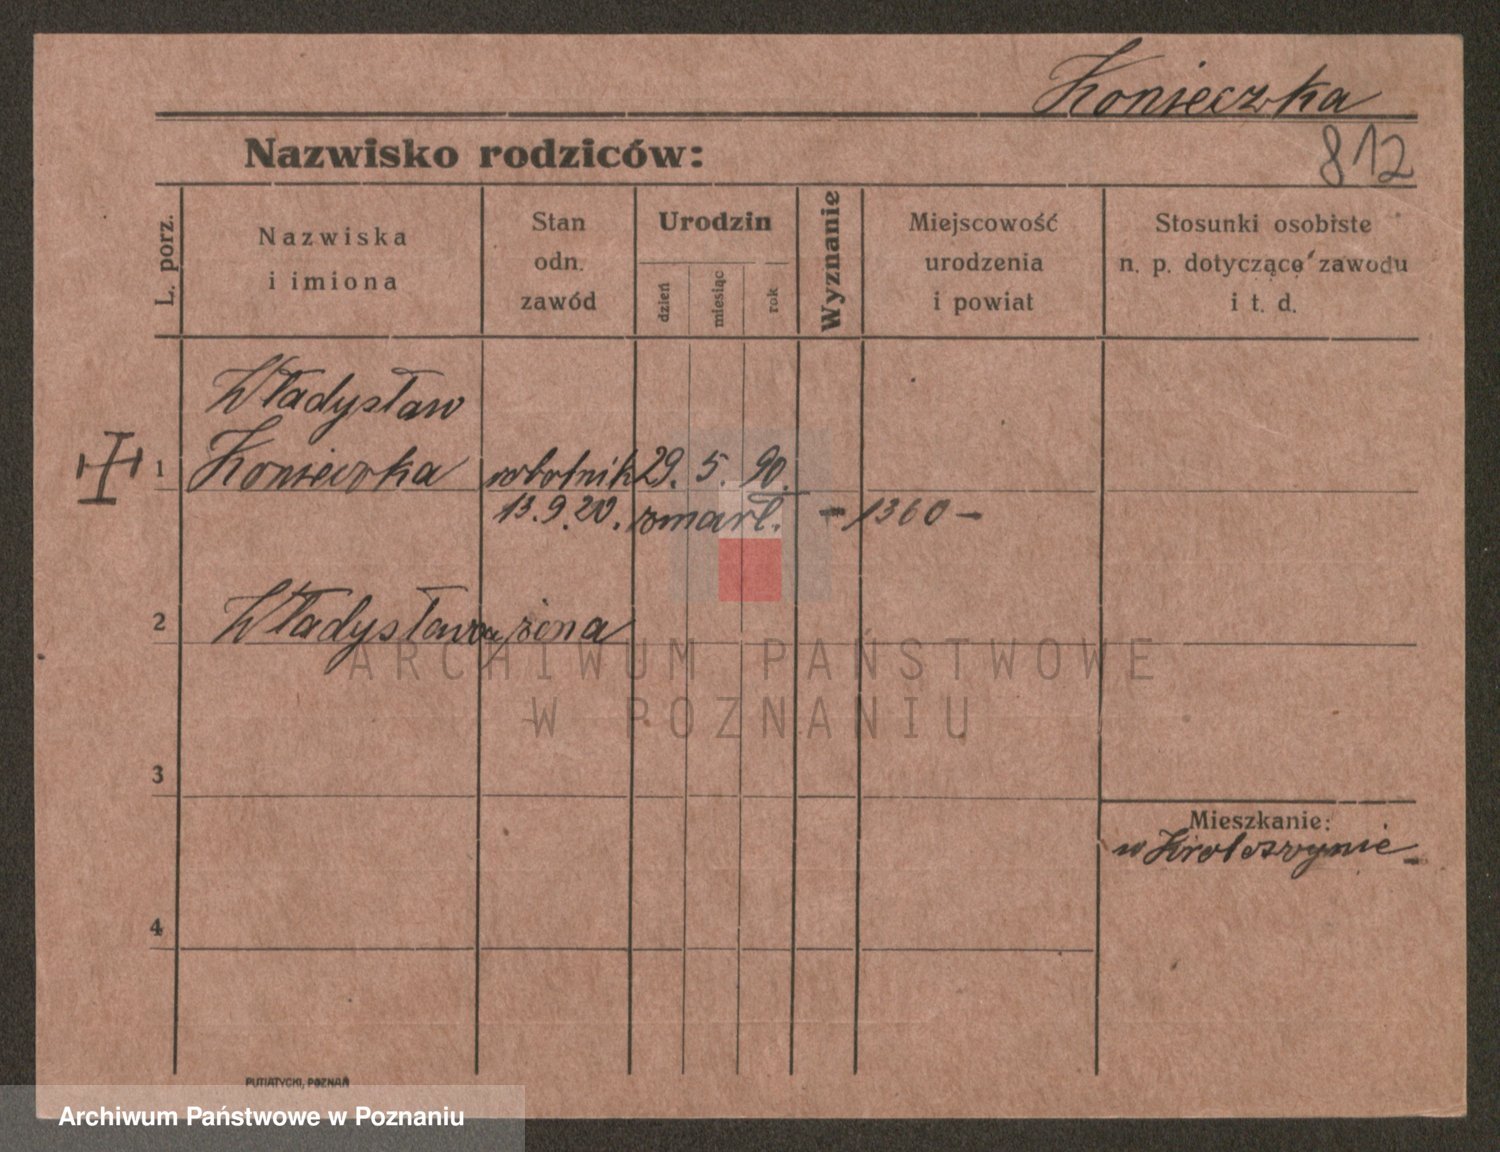 Konieczka
Nazwisko rodziców:
812
L. porz.
Nazwiska
i imiona
Stan
odn.
zawód
Urodzin
dzień
miesiąc
rok
Wyznanie
Miejscowość
urodzenia
i powiat
Stosunki osobiste
n. p. dotyczące zawodu
i t. d.
Władysław
1 Konieczka robotnik 29. 5. 90.
13.9.20. zmarł. - 1360 -
2 Władysława żona
ARCHIWUM PAŃSTWOWE
W POZNANIU
3
Mieszkanie:
w Krotoszynie
4
PUTIATYCKI, POZNAŃ
Archiwum Państwowe w Poznaniu